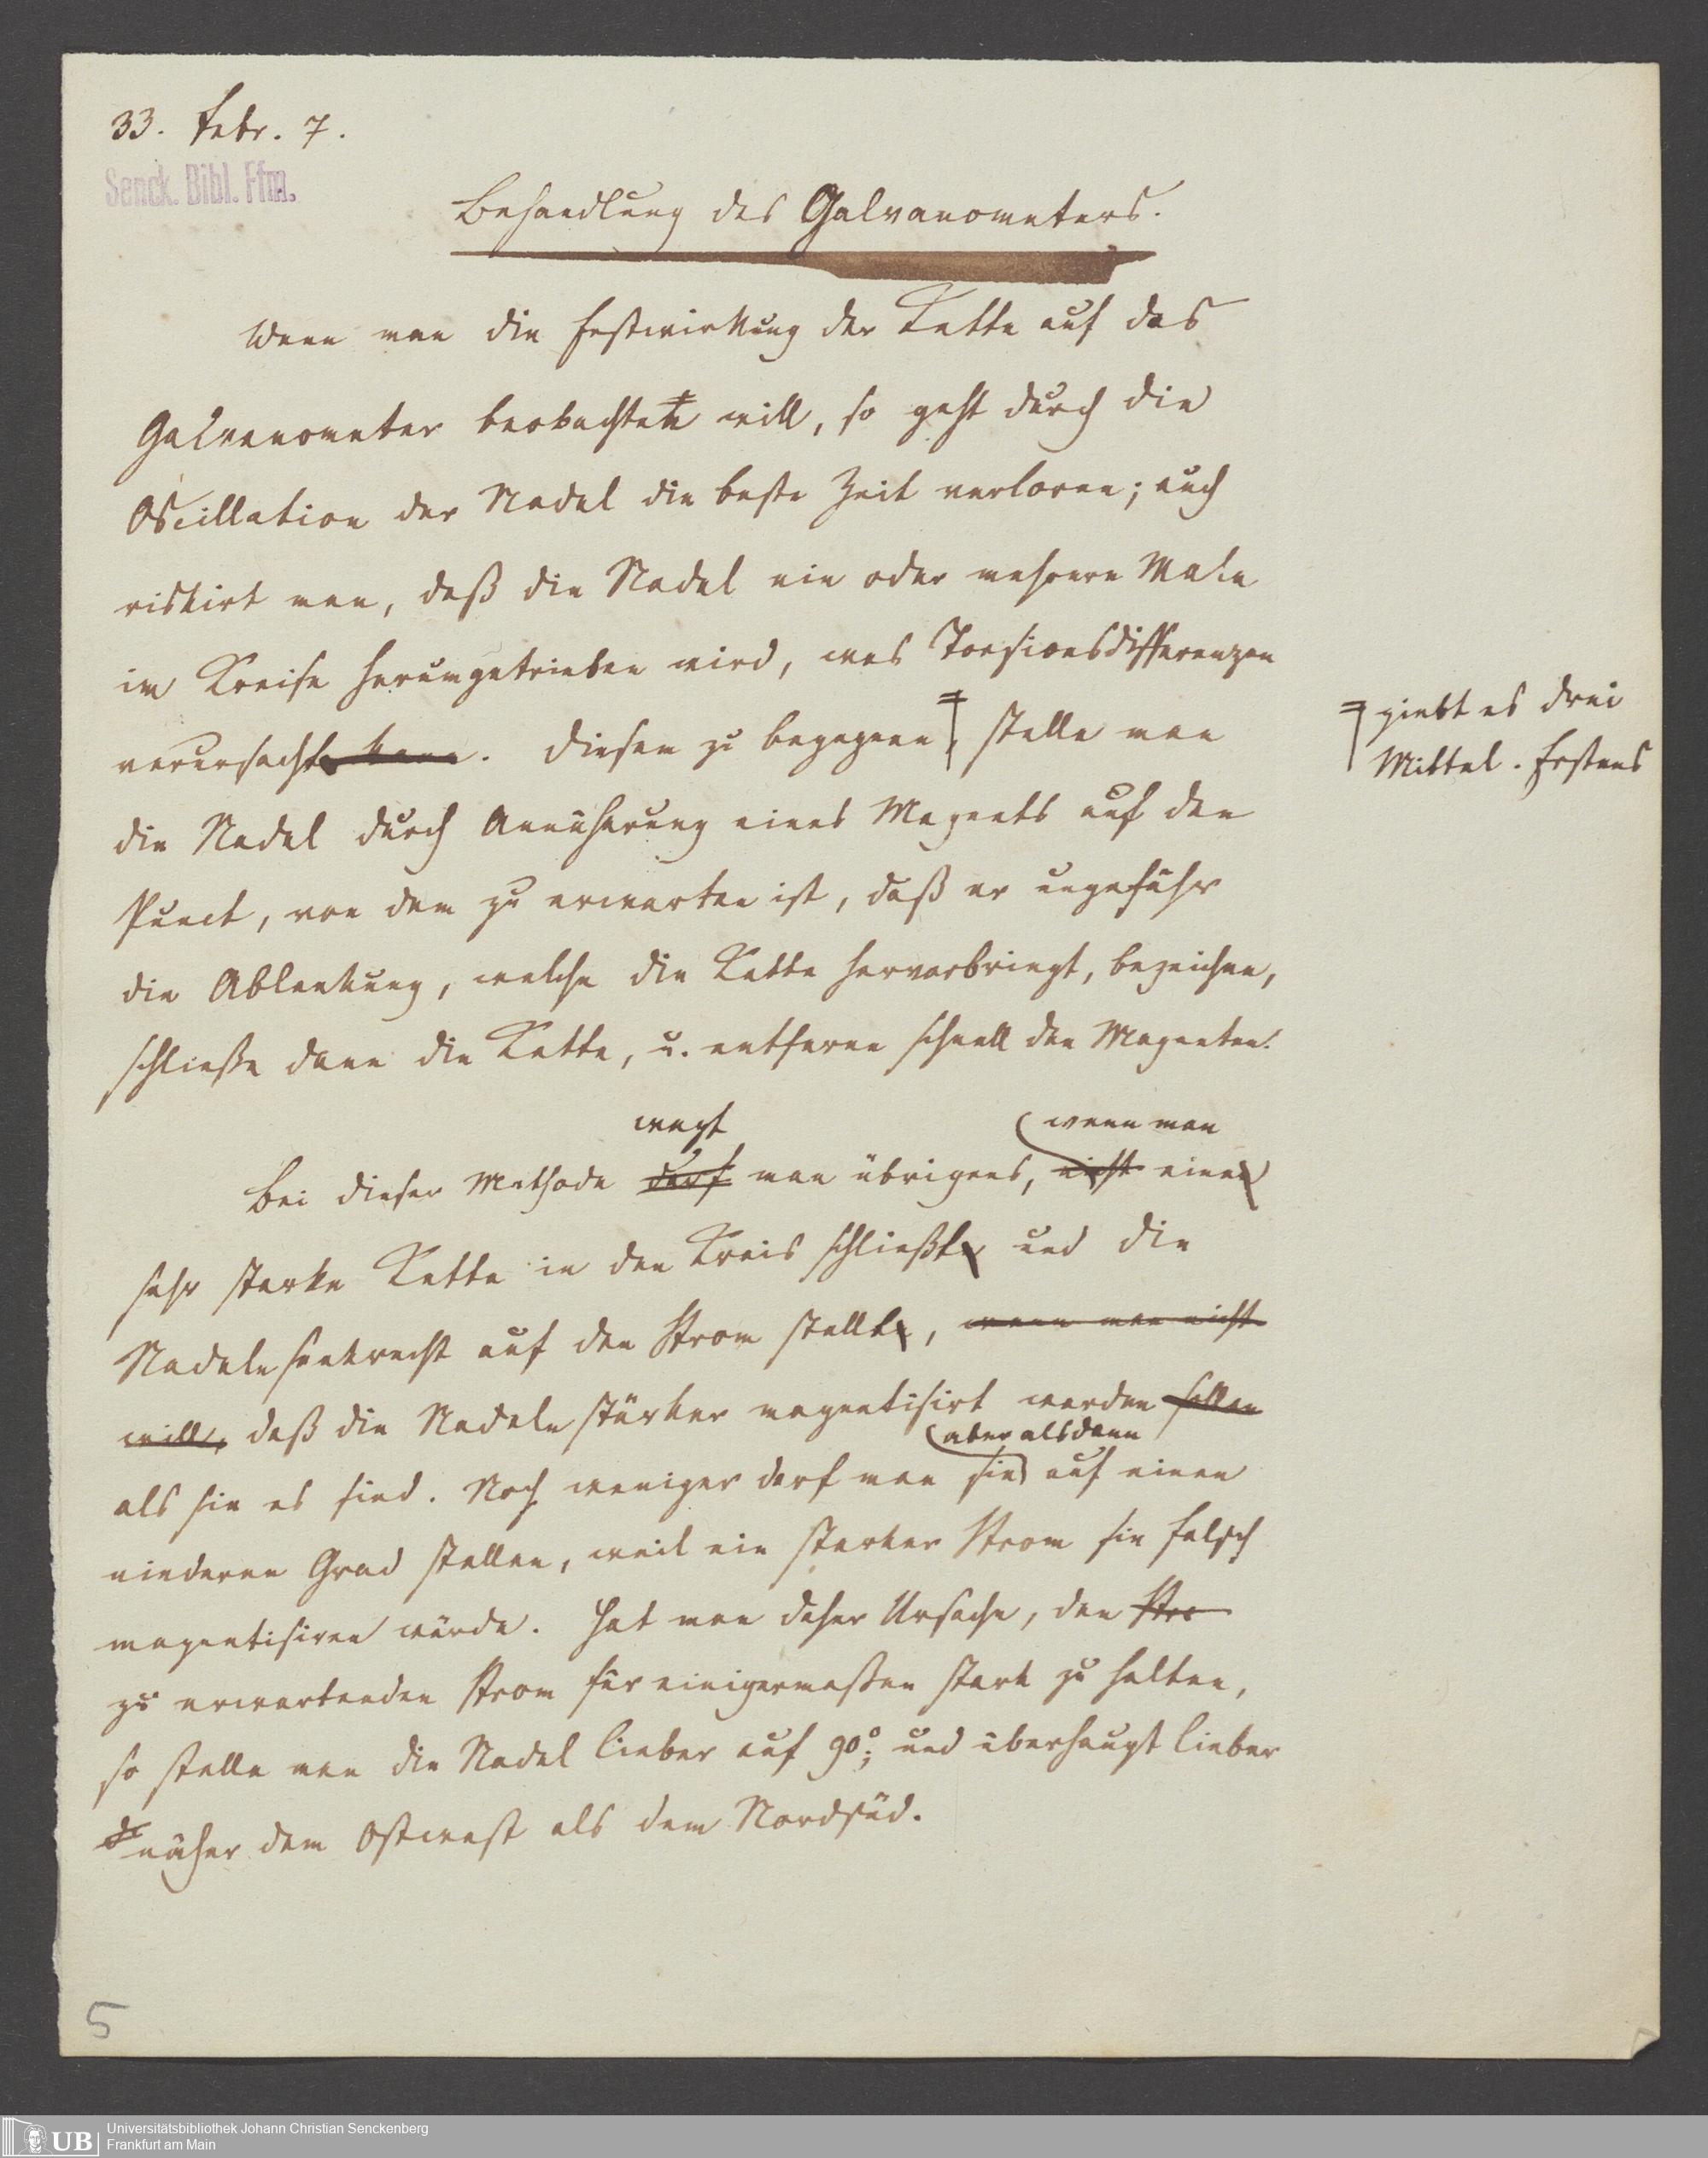 33. Febr. 7.
Senck. Bibl. Ffm.
Behandlung des Galvanometers.
Wenn man die Erstwirkung der Kette auf das
Galvanometer beobachten will, so geht durch die
Oscillation der Nadel die beste Zeit verloren; auch
riskirt man, daß die Nadel ein oder mehrere Male
im Kreise herumgetrieben wird, was Torsionsdifferenzen
verursacht kann. Diesen zu begegnen, stelle man
giebt es drei
Mittel. Erstens
die Nadel durch Annäherung eines Magnets auf den
Punct, von dem zu erwarten ist, daß er ungefähr
die Ablenkung, welche die Kette hervorbringt, bezeichne,
schließe dann die Kette, u. entferne schnell den Magneten.
wagt
wenn man
Bei dieser Methode darf man übrigens, nicht eine
sehr starke Kette in den Kreis schließt und die
Nadeln senkrecht auf den Strom stellt, wenn man nicht
will, daß die Nadeln stärker magnetisirt werden sollen
aber alsdann
als sie es sind. Noch weniger darf man sie auf einen
niederen Grad stellen, weil ein starker Strom sie falsch
magnetisiren würde. Hat man daher Ursache, den Stro
zu erwartenden Strom für einigermaßen stark zu halten,
so stelle man die Nadel lieber auf 90°; und überhaupt lieber
näher dem Ostwest als dem Nordsüd.
5
UB
Universitätsbibliothek Johann Christian Senckenberg
Frankfurt am Main